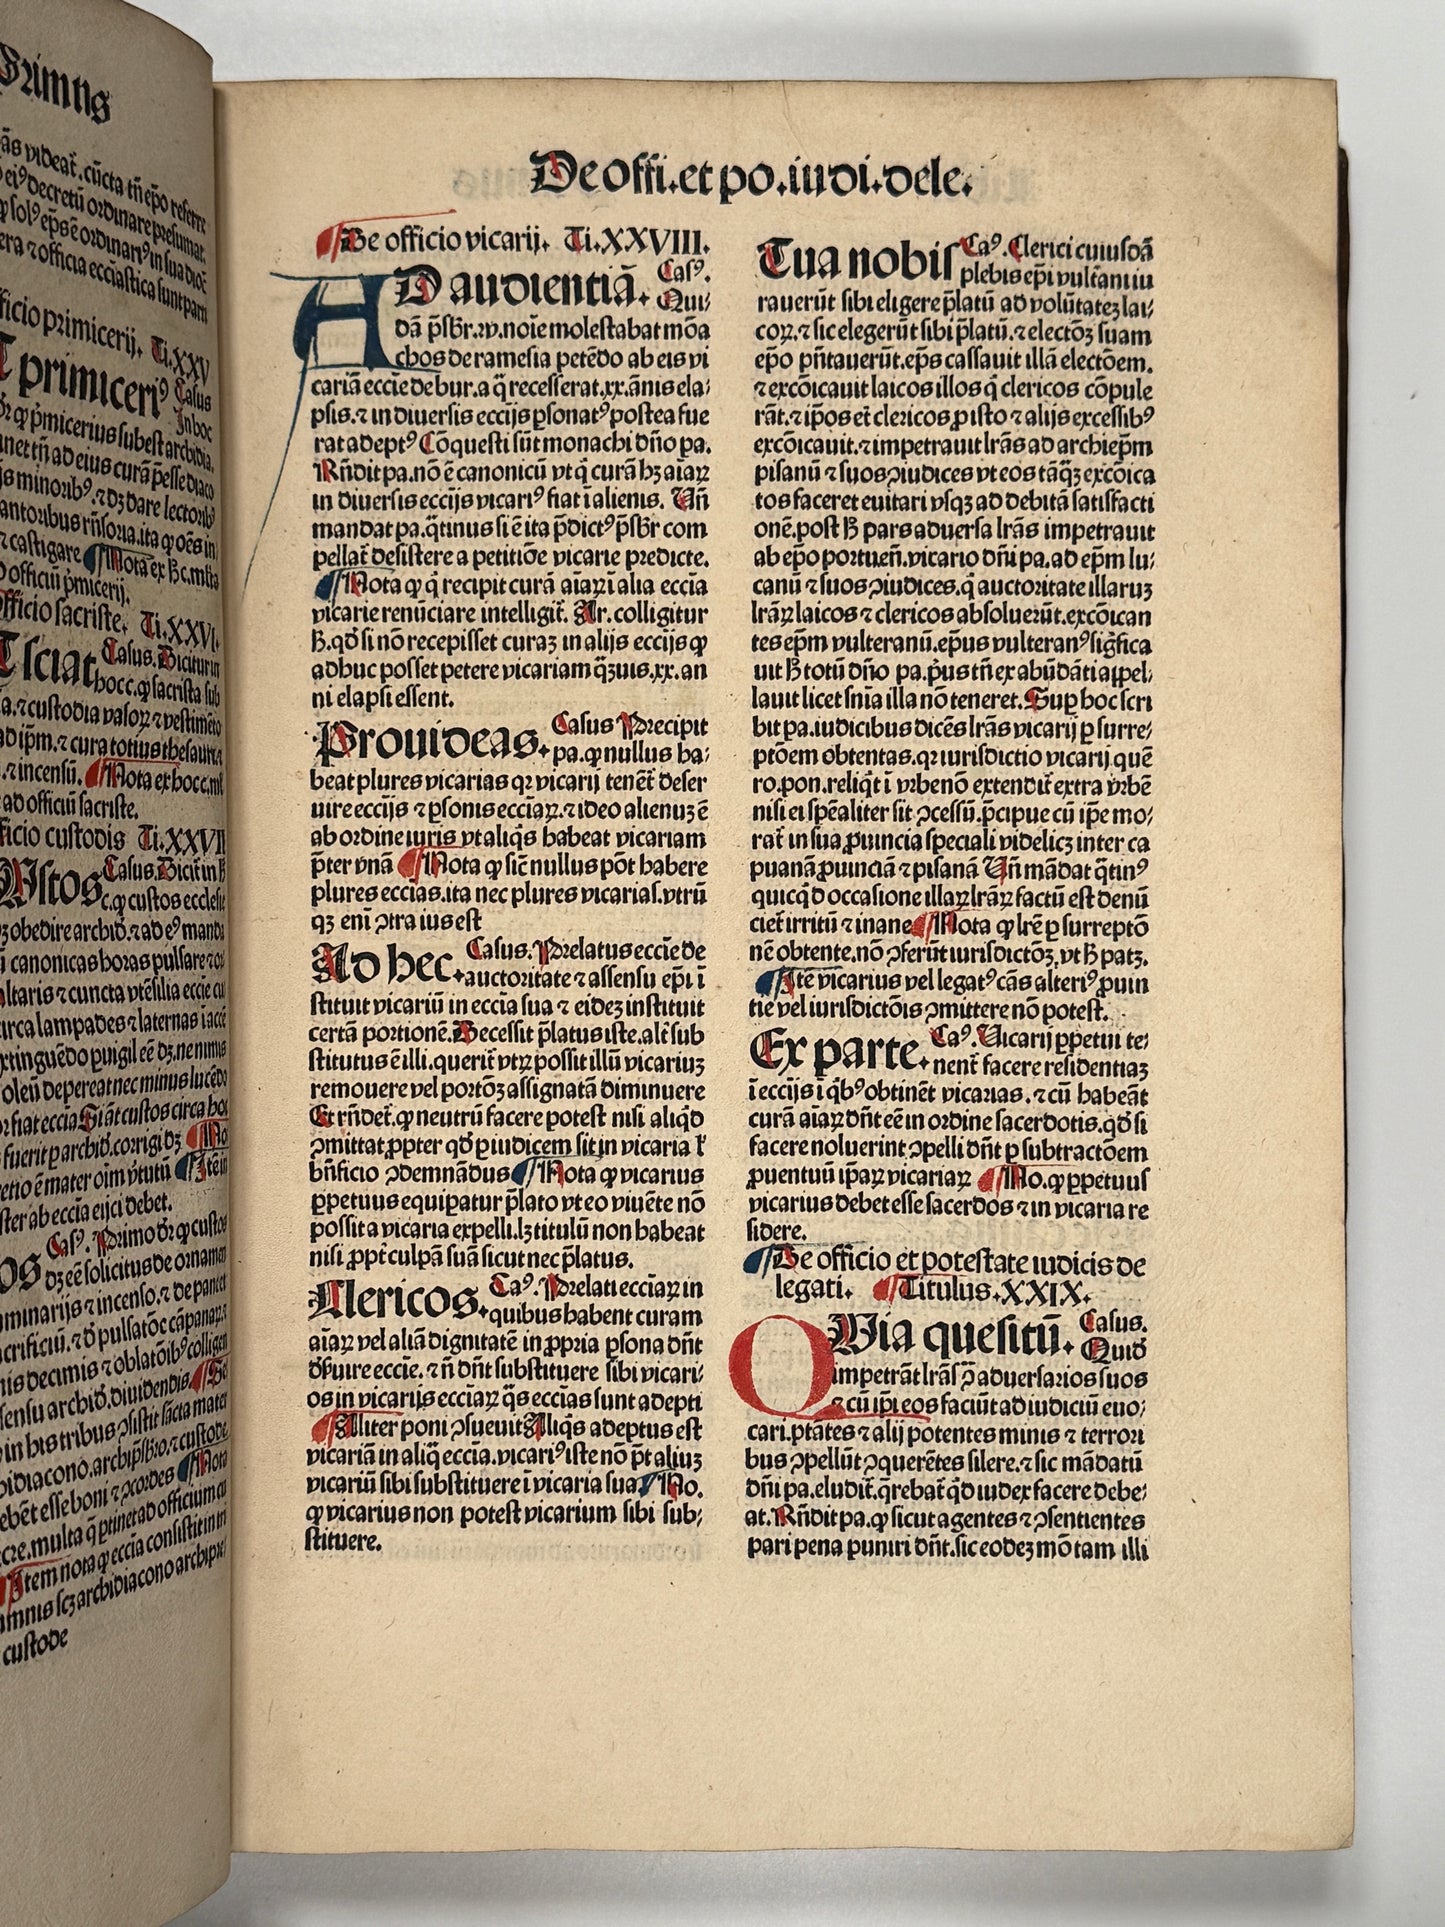 Primus
ãs videat̃. cũcta tñ ep̃o referre
ei⁹ decretũ ordinare presumat.
ꝙ sol⁹ ep̃s ẽ ordinari⁹ in sua dioc̃
era ⁊ officia eccl̃iastica sunt parti
ficio primicerij. Ti.XXV
T primiceri⁹ Casus
In hoc
dr̃ ꝙ p̃micerius subest archidia.
ad eius curã p̃esse diaco
s minorib⁹. ⁊ dꝫ dare lectorib⁹
antoribus rñsoria. ita ꝙ oẽs in
⁊ castigare Nota ex ħ c. mĺta
officiũ p̃micerij.
fficio sacriste. Ti.XXVI.
T sciat Casus. Dicitur in
hoc c. ꝙ sacrista sub
a. ⁊ custodia vasoꝝ ⁊ vestimẽto
ad ip̃m. ⁊ cura totius thesauri
. ⁊ incensũ. Nota ex hoc c. mĺ
ad officiũ sacriste.
ficio custodis Ti.XXVII
Ustos Casus. Dicit̃ in ħ
c. ꝙ custos ecclesie
ꝫ obedire archid̃. ⁊ ad e⁹ manda
ũ canonicas horas pulsare ⁊
altaris ⁊ cuncta vtẽsilia eccĩe cu
irca lampades ⁊ laternas ĩ accẽ
xtinguẽdo puigil eẽ dꝫ. ne nimis
oleũ depereat nec minus lucẽdo
fiat eccĩa Si ãt custos circa hoc
fuerit ꝑ archid̃. corrigi dꝫ No
etio ẽ mater oĩm v̓tutũ Itẽ in
ster ab eccĩa eijci debet.
os Cas⁹. Primo dr̃ ꝙ custos
dꝫ eẽ solicitus de ornamen
minarijs ⁊ incenso. ⁊ de pane ⁊
crificiũ. ⁊ d̓ pulsatõe cãpanaꝝ.
nis decimis ⁊ oblatõib⁹ colligen
sensu archid̃. diuidendis
in his tribus ↄ̃sistit sacta mater
bidiacono. archipsb̃ro. ⁊ custode
ebẽt esse boni ⁊ ↄ̃cordes Nota
cre. multa q̃ ꝑtinet ad officium
tem nota ꝙ eccĩa consistit in tri
mnis scꝫ archidiacono archipre
custode
De offi. et po. iudi. dele.
De officio vicarij. Ti.XXVIII.
AD audientiã. Cas⁹.
Qui⸗
dã p̃sb̃r. ꝛv. noĩe molestabat mõa
chos de ramesia petẽdo ab eis vi
cariã eccĩe de bur. a q̃ recesserat. xx. ãnis ela⸗
psis. ⁊ in diuersis eccĩjs ꝑsonat⁹ postea fue
rat adept⁹ Cõquesti sũt monachi dño pa.
Rñdit pa. nõ ẽ canonicũ vt q̓ curã hꝫ aĩaꝝ
in diuersis eccĩjs vicari⁹ fiat ĩ alienis. Uñ
mandat pa. q̃tinus si ẽ ita p̃dict⁹ p̃sb̃r com
pellat̃ desistere a petitiõe vicarie predicte.
Nota ꝙ q̓ recipit curã aĩaꝝ ĩ alia eccĩa
vicarie renũciare intelligit̃. Ar. colligitur
ħ. qd̓ si nõ recepisset curaꝫ in alijs eccĩjs ꝙ
adhuc posset petere vicariam q̃ꝫuis. xx. an
ni elapsi essent.
Prouideas. Casus Precipit
pa. ꝙ nullus ha⸗
beat plures vicarias qꝛ vicarij tenẽt̃ deser
uire eccĩjs ⁊ ꝑsonis eccĩaꝝ. ⁊ ideo alienuꝫ ẽ
ab ordine iuris vt aliq̓s habeat vicariam
p̃ter vnã Nota ꝙ sic̃ nullus põt habere
plures eccĩas. ita nec plures vicarias. vtrũ
qꝫ eni ↄ̃tra ius est
Ad hec. Casus. Prelatus eccĩe de
auctoritate ⁊ assensu ep̃i ĩ
stituit vicariũ in eccĩa sua ⁊ eideꝫ instituit
certã portionẽ. Decessit p̃latus iste. alt̃ sub
stitutus ẽ illi. querit̃ vtꝝ possit illũ vicariuꝫ
remouere vel portõꝫ assignatã diminuere
Et rñdet̃. ꝙ neutrũ facere potest nisi aliq̓d
ↄ̃mittat ꝓpter qd̓ ꝑ iudicem sit in vicaria ĺ
bñficio ↄ̃demnãdus Nota ꝙ vicarius
ꝑpetuus equipatur p̃lato vt eo viuẽte nõ
possit a vicaria expelli. lꝫ titulũ non habeat
nisi ꝓpt̃ culpã suã sicut nec p̃latus.
Clericos. Ca⁹. Prelati eccĩaꝝ in
quibus habent curam
aĩaꝝ vel aliã dignitatẽ in ꝓpria ꝑsona dñt
d̓seruire eccĩe. ⁊ ñ dñt substituere sibi vicari⸗
os in vicarijs eccĩaꝝ q̃s eccĩas sunt adepti
Aliter poni ↄ̃sueuit Aliq̓s adeptus est
vicariã in aliq̃ eccĩa. vicari⁹ iste nõ p̃t aliuꝫ
vicariũ sibi substituere ĩ vicaria sua No.
ꝙ vicarius non potest vicarium sibi sub⸗
stituere.
Tua nobis Ca⁹. Clerici cuiusdã
plebis ep̃i vult̃ani iu
rauerũt sibi eligere p̃latũ ad volũtateꝫ lai⸗
coꝝ. ⁊ sic elegerũt sibi p̃latũ. ⁊ electõꝫ suam
ep̃o pñtauerũt. ep̃s cassauit illã electõem.
⁊ excõicauit laicos illos q̓ clericos cõpule
rãt. ⁊ ip̃os et̃ clericos ꝓ isto ⁊ alijs excessib⁹
excõicauit. ⁊ impetrauit l̃ras ad archiep̃m
pisanũ ⁊ suos ↄ̃iudices vt eos tãq̃ꝫ excõica
tos faceret euitari vsqꝫ ad debitã satisfacti
onẽ. post ħ pars aduersa l̃ras impetrauit
ab ep̃o portueñ. vicario dñi pa. ad ep̃m lu⸗
canũ ⁊ suos ↄ̃iudices. q̓ auctoritate illaruꝫ
l̃raꝝ laicos ⁊ clericos absoluerũt. excõican
tes ep̃m vulteranũ. ep̃us vulteran⁹ sig̃fica
uit ħ totũ dño pa. p̓us tñ ex abũdãti appel⸗
lauit licet sñia illa nõ teneret. Suꝑ hoc scri
bit pa. iudicibus dicẽs l̃ras vicarij ꝑ surre⸗
ptõem obtentas. qꝛ iurisdictio vicarij. quẽ
ro. pon. reliq̓t ĩ vrbe nõ extendit̃ extra vrbẽ
nisi ei sp̃ealiter sit ↄ̃cessũ. p̃cipue cũ ip̃e mo⸗
rat̃ in sua ꝓuincia speciali videlicꝫ inter ca
puanã ꝓuinciã ⁊ pisanã Uñ mãdat q̃tin⁹
quicq̓d occasione illaꝝ l̃raꝝ factũ est denũ
ciet̃ irritũ ⁊ inane Nota ꝙ l̃re ꝑ surreptõ
nẽ obtente. nõ ↄ̃ferũt iurisdictõꝫ. vt ħ patꝫ.
Itẽ vicarius vel legat⁹ cãs alteri⁹ ꝓuin
tie vel iurisdictõis ↄ̃mittere nõ potest.
Ex parte. Ca⁹. Vicarij ꝑpetui te⸗
nent̃ facere residentiaꝫ
ĩ eccĩjs ĩ q̓b⁹ obtinẽt vicarias. ⁊ cũ habeãt
curã aĩaꝝ dñt eẽ in ordine sacerdotis. qd̓ si
facere noluerint ↄ̃pelli dñt ꝑ subtractõem
ꝓuentuũ ip̃aꝝ vicariaꝝ No. ꝙ ꝑpetuus
vicarius debet esse sacerdos ⁊ in vicaria re
sidere.
De officio et potestate iudicis de
legati. Titulus. XXIX.
QUia quesitũ. Casus.
Quid̃
impetrãt l̃ras ↄ̃ aduersarios suos
⁊ cũ ip̃i eos faciũt ad iudiciũ euo⸗
cari. ptãtes ⁊ alij potentes minis ⁊ terrori
bus ↄ̃pellũt ↄ̃querẽtes silere. ⁊ sic mãdatũ
dñi pa. eludit̃. q̃rebat̃ q̓d iudex facere debe⸗
at. Rñdit pa. ꝙ sicut agentes ⁊ ↄ̃sentientes
pari pena puniri dñt. sic eodeꝫ mõ tam illi